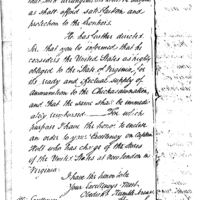 as shall afford safe
protection to the frontiers.
He has further directed
me that you be informed, that he
considers the United States as highly
obliged to the State of Virginia, for
its ready and effectual supply of
ammunition to the Chickasaw nation,
and that the same shall be immedi-
ately reimbursed. For which
purpose I have the honor to enclose
an order to your Excellency on Captain
who has charge of the stores
of the United States at new london in
Virginia.
I have the honor to be
Your Excellencys Most
Obedient Humble